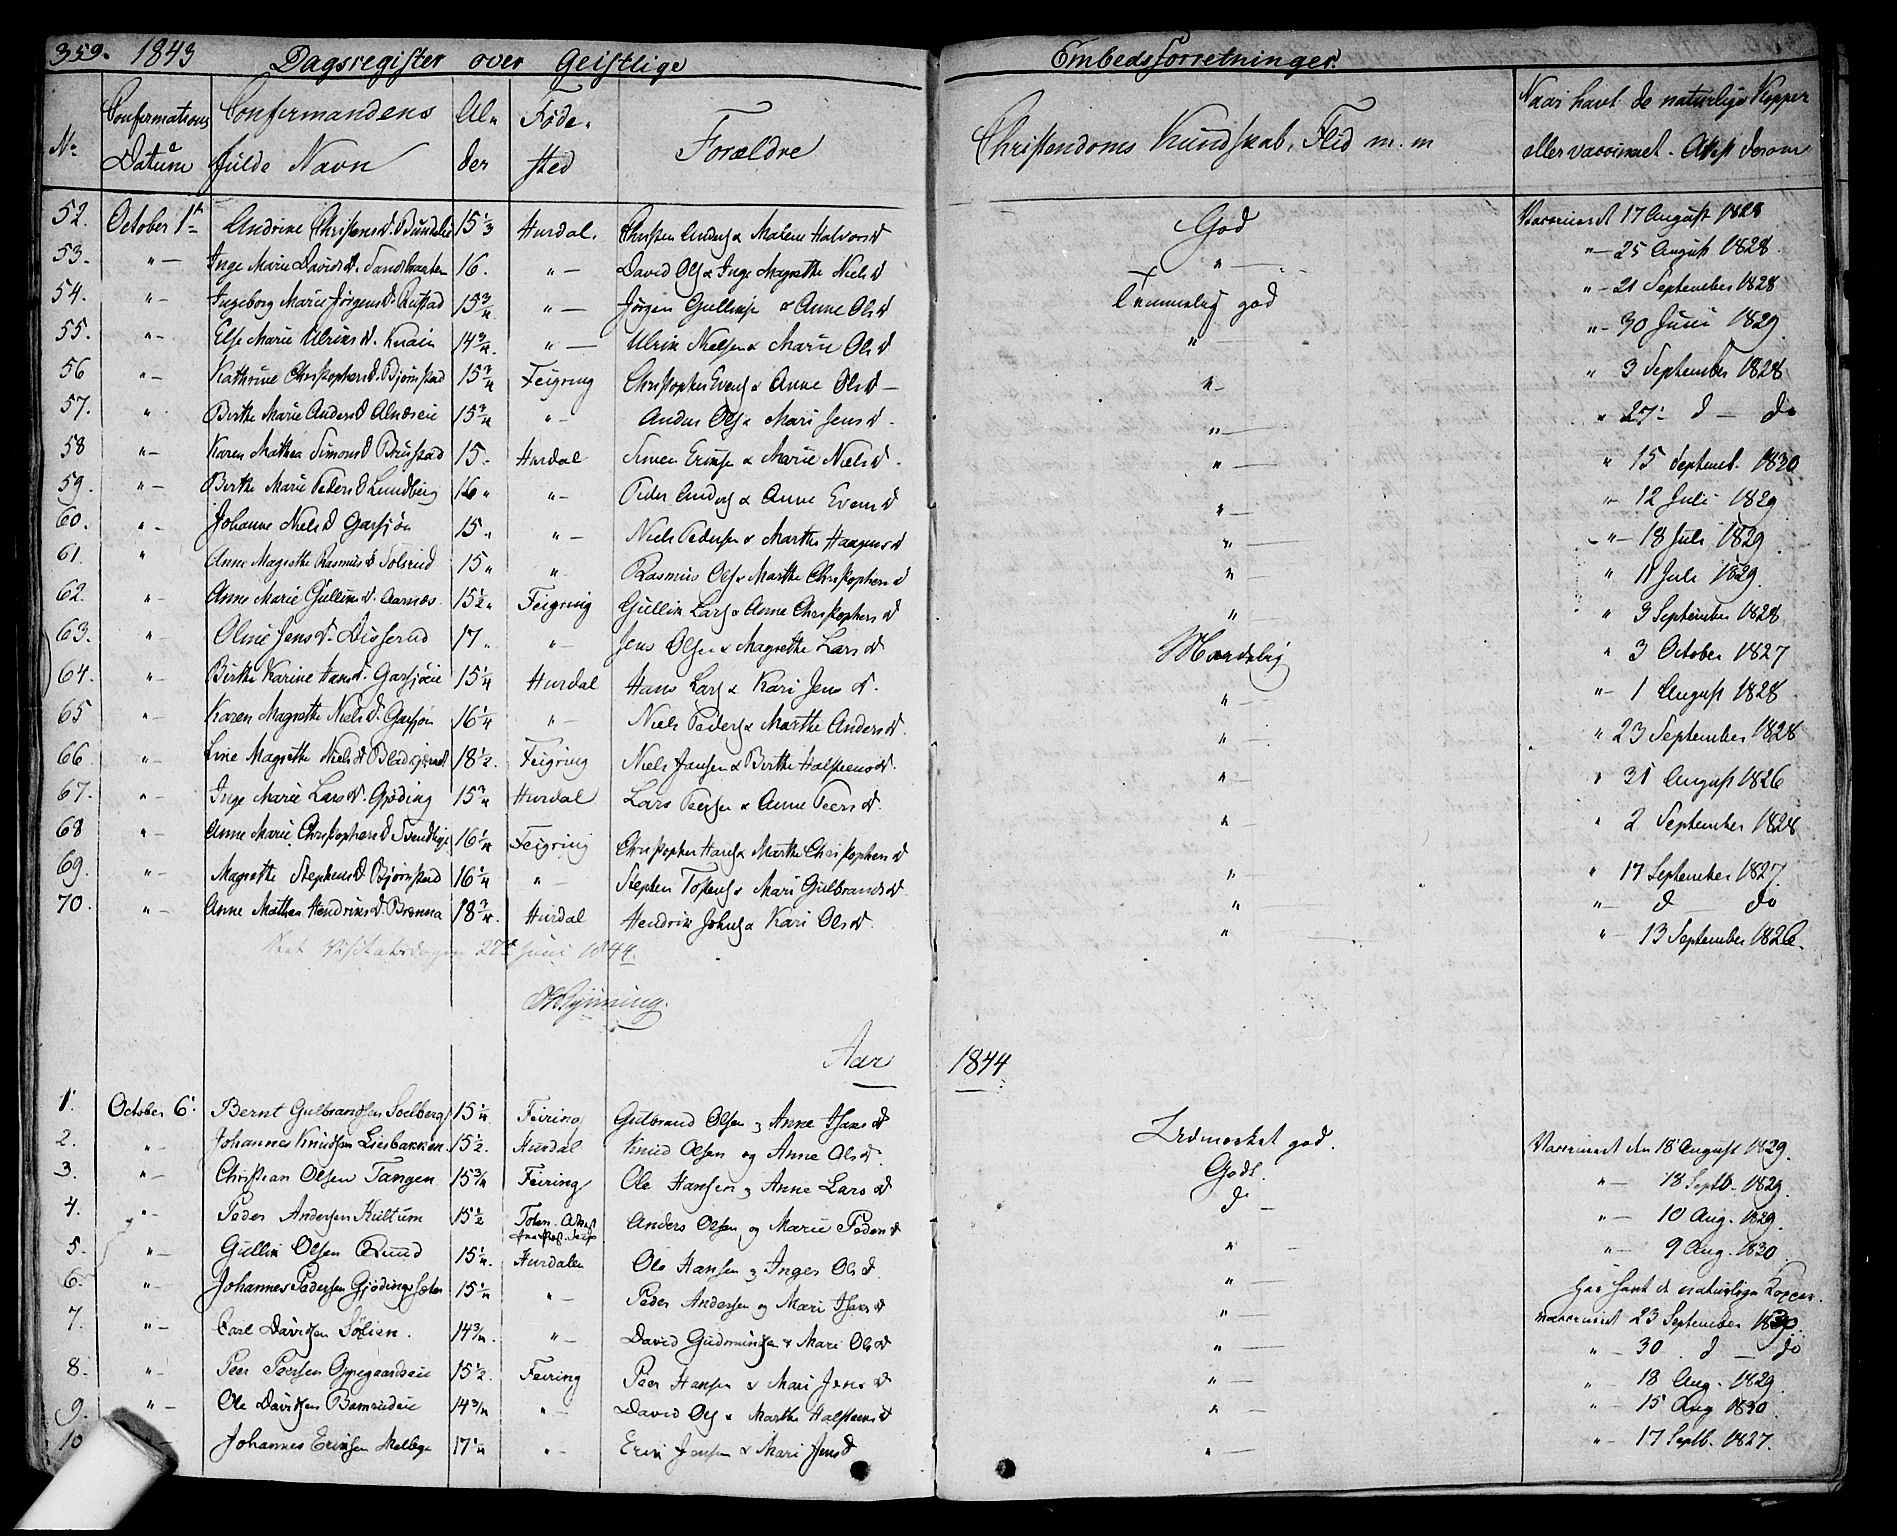 359. 1843 Dagsregister over Geistlige Embedsforretninger.
No Confirmations Datum Confirmandens fulde Navn Alder Fødested Forældre Christendoms Kundskab, Flid m. m Naar havt de naturlige Kopper eller vaccineret. Attest derom
52. October 1te Andrine Christensd. 15 1/3 Hurdal. Christen Anders & Malene Halvorsd God Vaccineret 17 August 1828
53. "— Inge Marie Davidsd. 16. "— David Ols & Inge Magrethe Nielsd "— "— 25 August 1828.
54. "— Ingeborg Marie Jørgensd. Rustad 15 3/4 "— Jørgen Gulliks & Anne Olsd Temmelig god "— 21 September 1828
55. "— Else Marie Ulriksd. Knain 14 3/4. "— Ulrik Nielsen & Marie Olsd " "— 30 Juni 1829.
56 "— Kathrine Christophersd. Bjørnstad 15 3/4 Feigring Christopher Evens & Anne Olsd — "— " 3 September 1828
57. " Berthe Marie Andersd Alnæseie 15 3/4 "— Anders Ols & Mari Jensd. "— " 27 d — do
58 "— Karen Mathea Simonsd Brustad 15. Hurdal Simen Eriks & Marie Nielsd. "— " 15 Septembr. 1830
59. "— Berthe Marie Pedersd Lundberg 16 " "— Peder Anders & Anne Evensd "— "— 12 Juli 1829
60. "— Johanne Nielsd Garsjøn 15. "— Niels Pedersen & Marthe Haagensd "— "— 18 Juli 1829.
61. " Anne Magrethe Rasmusd Solsrud 15 " " Rasmus Ols & Marthe Christophersd "— " 11 Juli 1829.
62. "— Anne Marie Gulliksd. Aarnæs. 15 1/2. Feigring Gullik Lars & Anne Christophersd " " 3 September 1828
63. "— Oline Jensd. Disserud 17. "— Jens Olsen & Magrethe Larsd Maadelig " 3 October 1827
64. "— Birthe Karine Hansd. Garsjøeie 15 1/4 Hurdal Hans Lars & Kari Jensd. "— "— 1 August 1828
65 "— Karen Magrethe Nielsd. Garsjøn 16 1/4 "— Niels Peders & Marthe Andersd. "— " 23 September 1828
66. "— Line Magrethe Nielsd 18 1/2. Feigring Niels Jansen & Berthe Halsteensd. "— " 31 August 1826
67. "— Inge Marie Larsd. Gjøding 15 3/4 Hurdal Lars Peersen & Anne Peersd. "— " 2 September 1828
68 "— Anne Marie Christophersd 16 1/4 Feigring Christopher Hans & Marthe Christophersd "— " 17 September 1827.
69. "— Magrethe Stephensd. Bjørnstad 16 1/4 "— Stephen Tostens & Mari Gulbrandsd "— "— d — do
70. "— Anne Mathea Hendriksd. Brænna 18 3/4. Hurdal Hendrik Johns & Kari Olsd. " "— 13 September 1826.
27de Juni 1844.
Aar 1844.
1. October 6. Bernt Gulbrandsen Soelberg 15 1/4 Feiring Gulbrand Olsen & Anne Hansd Udmærket god. Vaccineret den 18 August 1829.
2. "— Johannes Knudsen Liesbakken 15 1/2. Hurdal Knud Olsen og Anne Olsd. Godt. "— 18 Septb. 1829.
3. "— Christian Olsen Tangen 15 3/4 Feiring Ole Hansen & Anne Larsd do — "— 10 Aug. 1829.
4. "— Peder Andersen Kultum 15 1/2 Toten. Anders Olsen og Marie Pedersd "— "— 9 Aug. 1830.
5. "— Gullik Olsen Ruud 15 1/4. Hurdalen Ole Hansen & Inger Olsd. "— har havt de naturlige Kopper.
6. "— Johannes Pedersen Gjødingsæter 15 1/4 "— Peder Andersen og Mari Hansd "— vaccineret 23 September 1830.
7. "— Carl Davidsen Sølien. 14 3/4. "— David Gudmundsen & Mari Olsd "— "— 30 d — do
8. "— Peer Peersen Øgregaardseie 15 1/2. Feiring Peer Hansen & Mari Jensd "— "— 18 Aug. 1829.
9. "— Ole Davidsen 14 3/4 "— David Ols & Marthe Halsteensd "— "— 15 Aug 1830.
10 Johannes Eriksen 17 1/4 "— Erik Jensen & Mari Jensd "— "— 17 Septb. 1827.